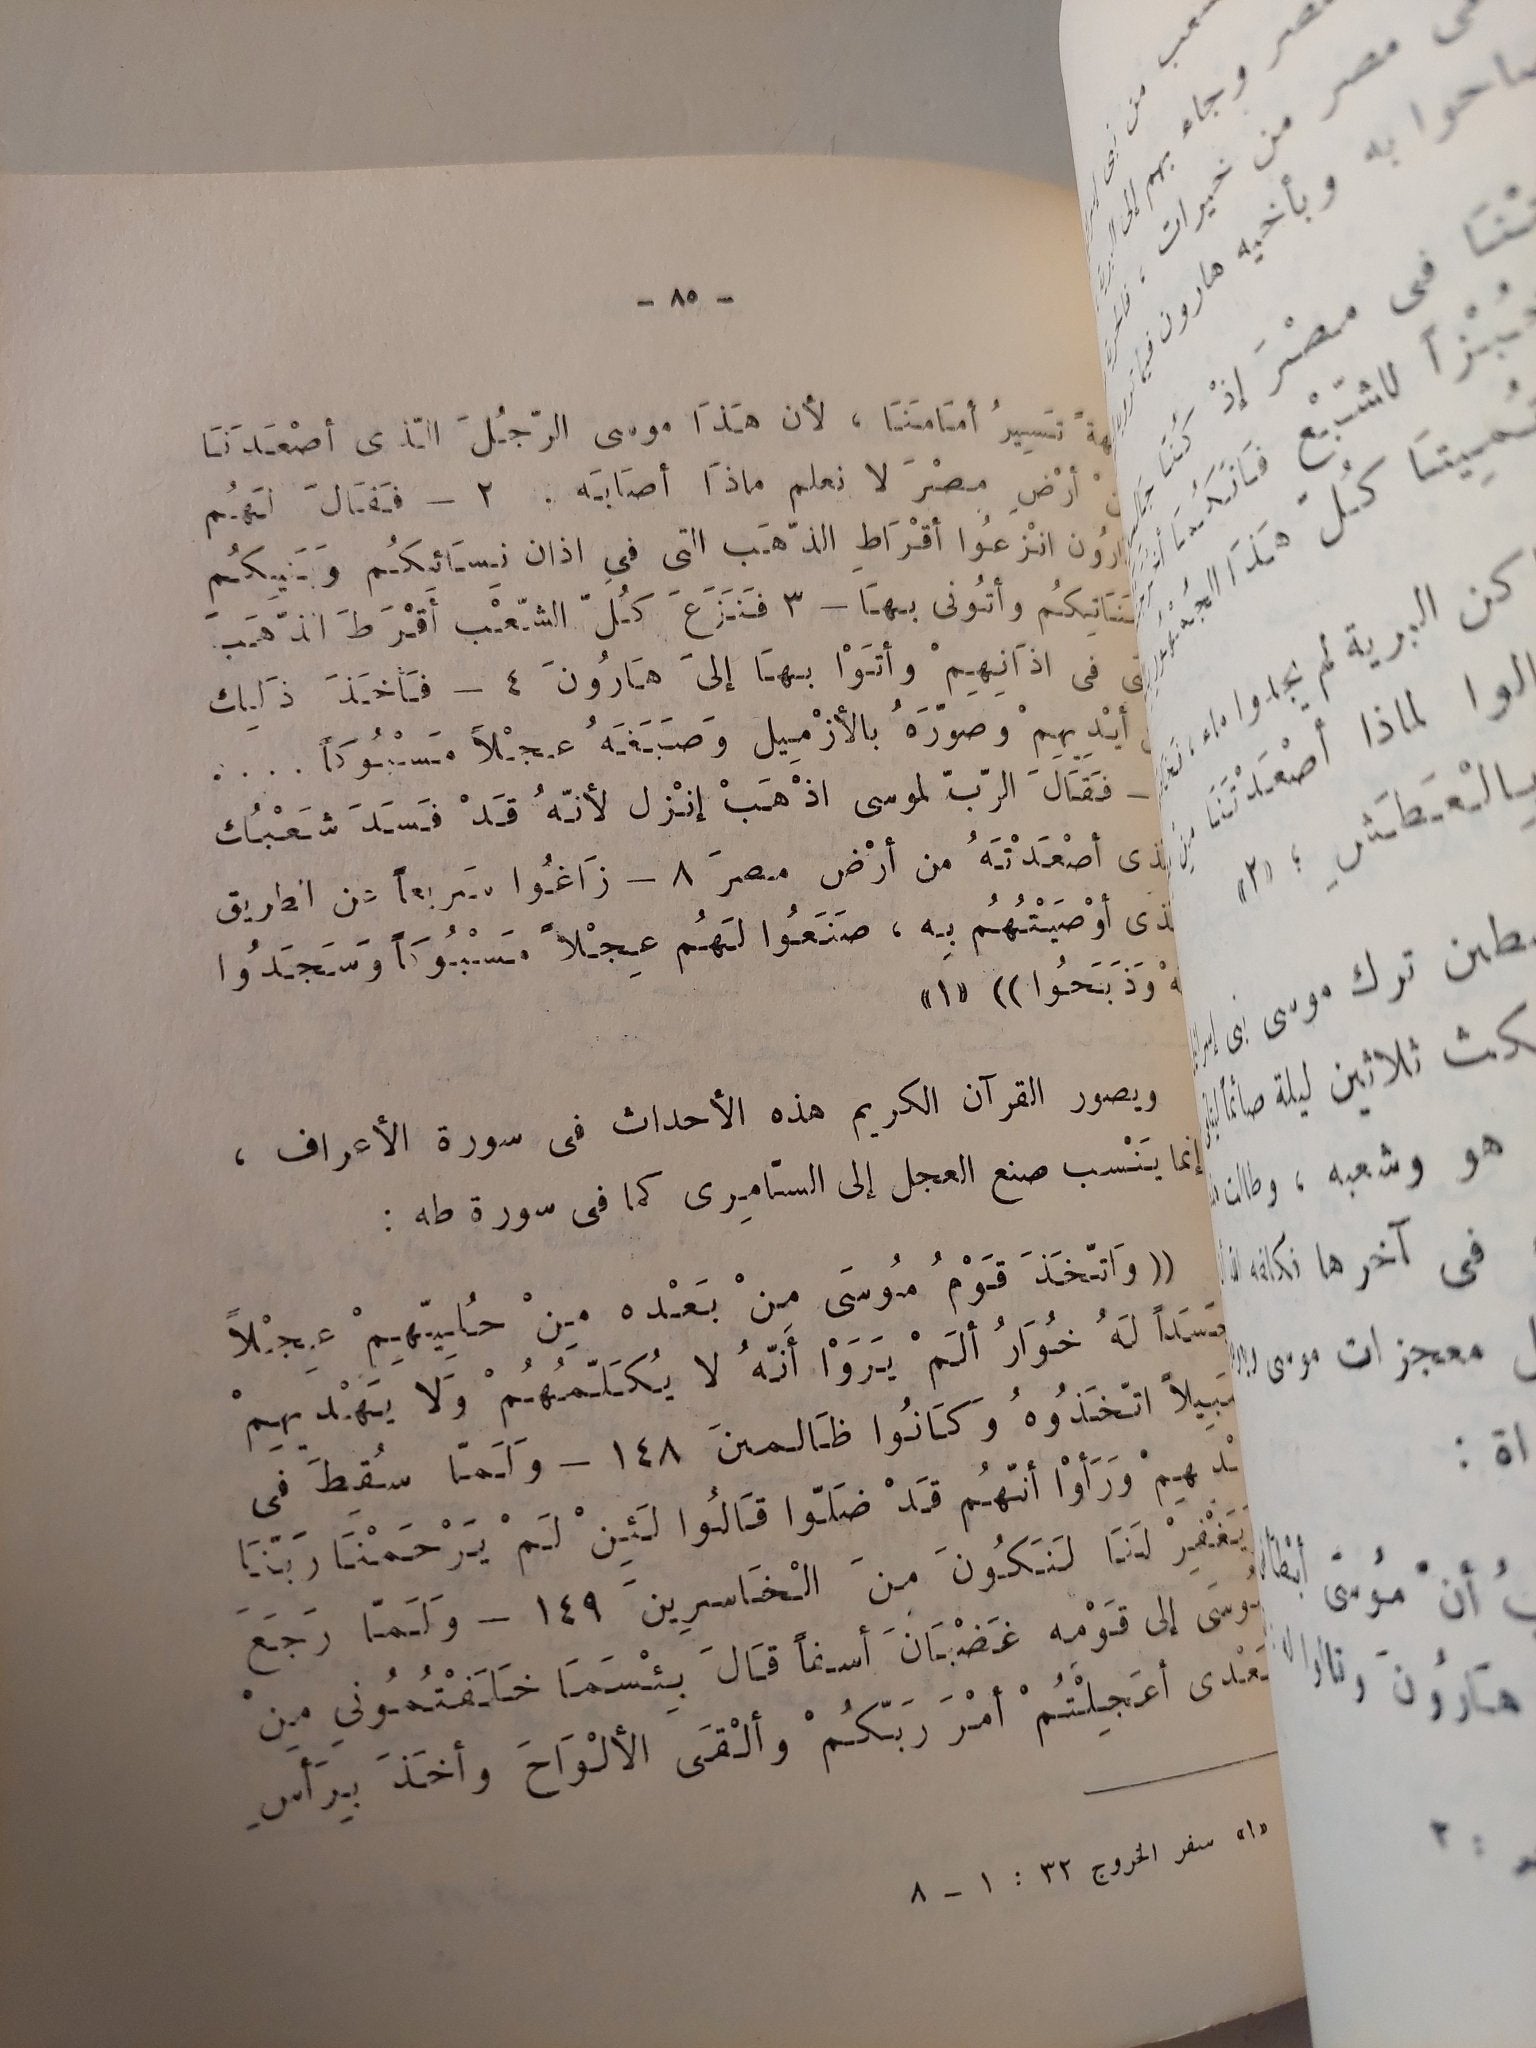 - ٨٥ -
تَسِيرُ أمَامَنَا ، لأن هَذَا موسى الرّجُلَ الّذى أصْعَدَنَا
أرْضِ مِصْرَ لا نعلم ماذَا أصَابَه . ٢ – فَقَالَ لَهُم
انْزعُوا أقْرَاطِ الذّهَب التى فىِ اذان نِسَائكُم وَبَنِيكُم
وأتُونى بهَا – ٣ فَنَزَعَ كُلّ الشّعْب أَقْرَطَ الذّهَبَ
فى اذَانِهِمْ وأتَوْا بهَا إلىَ هَارُونَ ٤ – فَأخَذَ ذَلِك
أيْدِيهِمْ وَصَوّرَهُ بالأزْمِيل وَصَبَغَهُ عجْلاً مَسْبُوكَاً ....
– فَقَالَ الرّبّ لموسى اذْهَبْ إنْزل لأنّهُ قَدْ فَسَدَ شَعْبُك
أصْعَدْتَهُ من أرْض مصرَ ٨ – زَاغُوا سَريعاً عن الطريق
أوْصَيْتُهُم بِه ، صَنَعُوا لَهُم عِجْلاً مَسْبُوكَاً وَسَجَدُوا
وَذَبَحُوا )) «١»
ويصور القرآن الكريم هذه الأحداث فى سورة الأعراف ،
إنما يَنْسب صنع العجل إلى السّامِرى كما فى سورة طه :
(( وَاتّخَذَ قَوْمُ مُوسَى مِنْ بَعْده مِنْ حُلِيّهِمْ عِجْلاً
لَهُ خُوَارُ ألَمْ يَرَوْا أَنّهُ لا يُكَلّمُهُمْ وَلا يَهْدِيهِمْ
اتّخَذُوهُ وَكَانُوا ظَالمينَ ١٤٨ – وَلَمّا سُقِطَ فى
وَرَأوْا أنّهُم قَدْ ضَلّوا قَالُوا لَئِنْ لَمْ يَرْحَمْنَا رَبّنَا
يَغْفِرْ لَنَا لَنَكُونَ مِنَ الْخَاسرِينَ ١٤٩ – وَلَمّا رَجَعَ
إلى قَوْمِه غَضْبَانَ أسفاً قَالَ بِئْسَمَا خَلَفْتُمُونىِ مِنْ
أعَجِلْتُمْ أمْرَ رَبّكُمْ وألْقَى الألْوَاحَ وأخَذَ بِرَأسِ
«١» سفر الخروج ٣٢ : ١ – ٨
مصر من خيرات ،
به وبأخيه هارون
فى مصْرَ إذْ كُنّا
للشّبْع
كُلّ هَذَا
البرية لم يجدوا ماء ،
لماذا أصْعَدْتَنَا
بِالْعَطَشِ ؛ «٢»
ترك موسى بنى
ثلاثين ليلة صائماً
هو وشعبه ، وطالت
فى آخرها
معجزات موسى
أنْ مُوسَى
هَارُونَ وقالوا